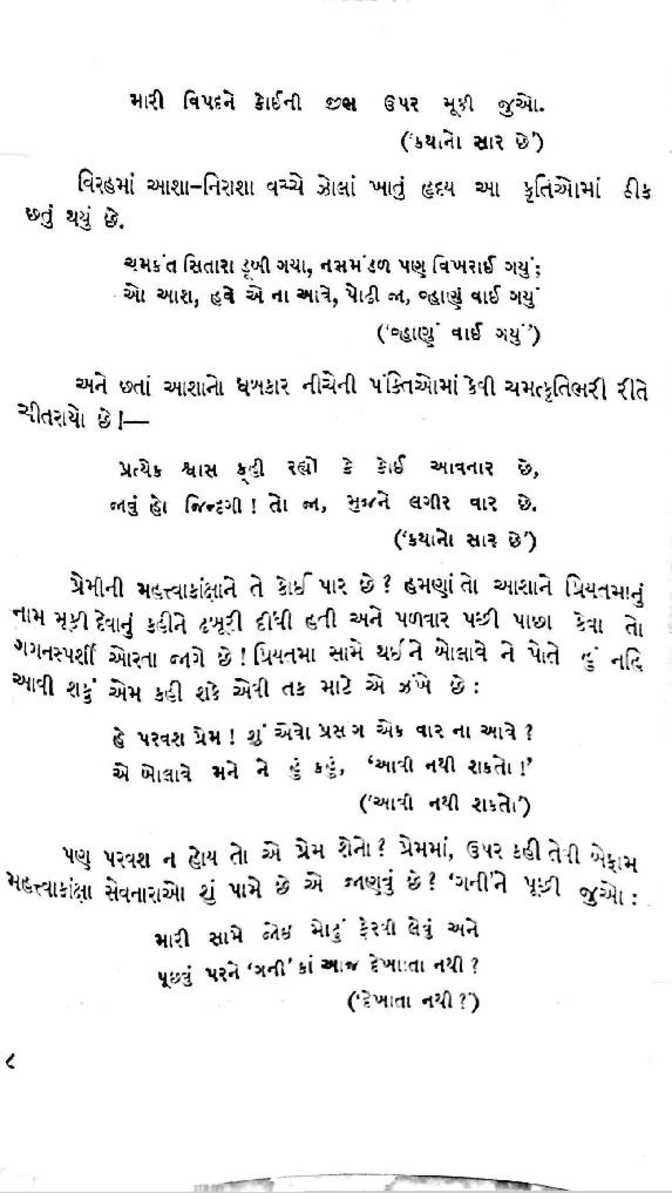 મારી વિપદને કોઈની જીભ ઉપર મૂકી જુઓ.
(‘કથાનો સાર છે’)
વિરહમાં આશા–નિરાશા વચ્ચે ઝોલાં ખાતું હૃદય આ કૃતિઓમાં ઠીક
છતું થયું છે.
ચમકંત સિતારા ડૂબી ગયા, નભમંડળ પણ વિખરાઈ ગયું;
ઓ આશ, હવે એ ના આવે, પોઢી જા, વ્હાણું વાઈ ગયું
(‘વ્હાણું વાઈ ગયું’)
અને છતાં આશાનો ધબકાર નીચેની પંક્તિઓમાં કેવી ચમત્કૃતિભરી રીતે
ચીતરાયો છે !—
પ્રત્યેક શ્વાસ કહી રહ્યો કે કોઈ આવનાર છે,
જાવું હો જિન્દગી ! તો જા, મુજને લગીર વાર છે.
(‘કથાનો સાર છે’)
પ્રેમીની મહત્ત્વાકાંક્ષાને તે કોઈ પાર છે ? હમણાં તો આશાને પ્રિયતમાનું
નામ મૂકી દેવાનું કહીને ઢબૂરી દીધી હતી અને પળવાર પછી પાછા કેવા તો
ગગનસ્પર્શી ઓરતા જાગે છે ! પ્રિયતમા સામે થઈને બોલાવે ને પોતે હું નહિ
આવી શકું એમ કહી શકે એવી તક માટે એ ઝંખે છે :
હે પરવશ પ્રેમ ! શું એવો પ્રસંગ એક વાર ના આવે ?
એ બોલાવે મને ને હું કહું, ‘આવી નથી શકતો !’
(‘આવી નથી શકતો’)
પણ પરવશ ન હોય તો એ પ્રેમ શેનો ? પ્રેમમાં, ઉપર કહી તેવી બેફામ
મહત્ત્વાકાંક્ષા સેવનારાઓ શું પામે છે એ જાણવું છે ? ‘ગની’ને પૂછી જુઓ :
મારી સામે જોઇ મોઢું ફેરવી લેવું અને
પૂછવું પરને ‘ગની’ કાં આજ દેખાતા નથી ?
(‘દેખાતા નથી ?’)
૮